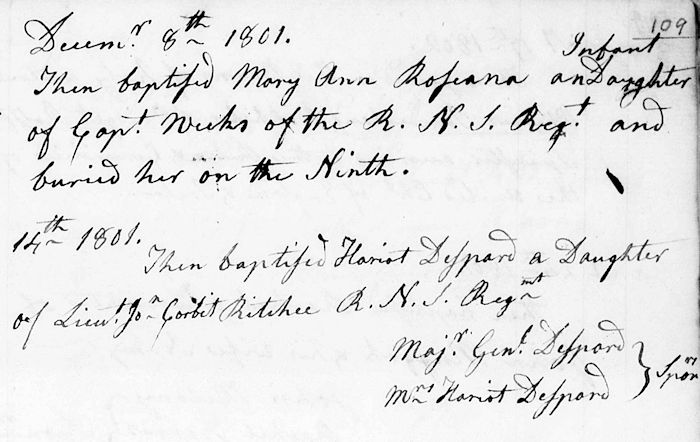 109
Decemr. 8th 1801.
Then baptised Mary Ann Roseana an Infant Daughter
of Capt. Weeks of the R. N. S. Regt. and
buried her on the Ninth.
14th 1801.
Then baptised Hariot Despard a Daughter
of Lieut. Jon Corbit Ritchee R. N. S. Regmt
Majr. Genl. Despard
Mrs Hariot Despard } Sponrs